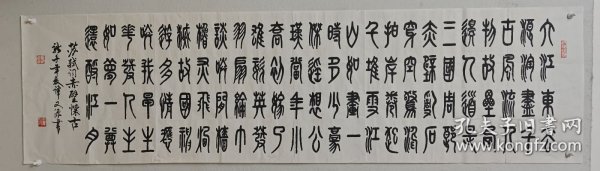 大江東去
浪淘盡千
古風流人
物故壘西
邊人道是
三國周郎
赤壁亂石
穿空驚濤
拍岸捲起
千堆雪江
山如畫一
時多少豪
傑遙想公
瑾當年小
喬初嫁了
雄姿英發
羽扇綸巾
談笑間檣
櫓灰飛煙
滅故國神
遊多情應
笑我早生
華髮人生
如夢一尊
還酹江月
蘇軾詞赤壁懷古
孔夫子旧书网
www.kongfz.com